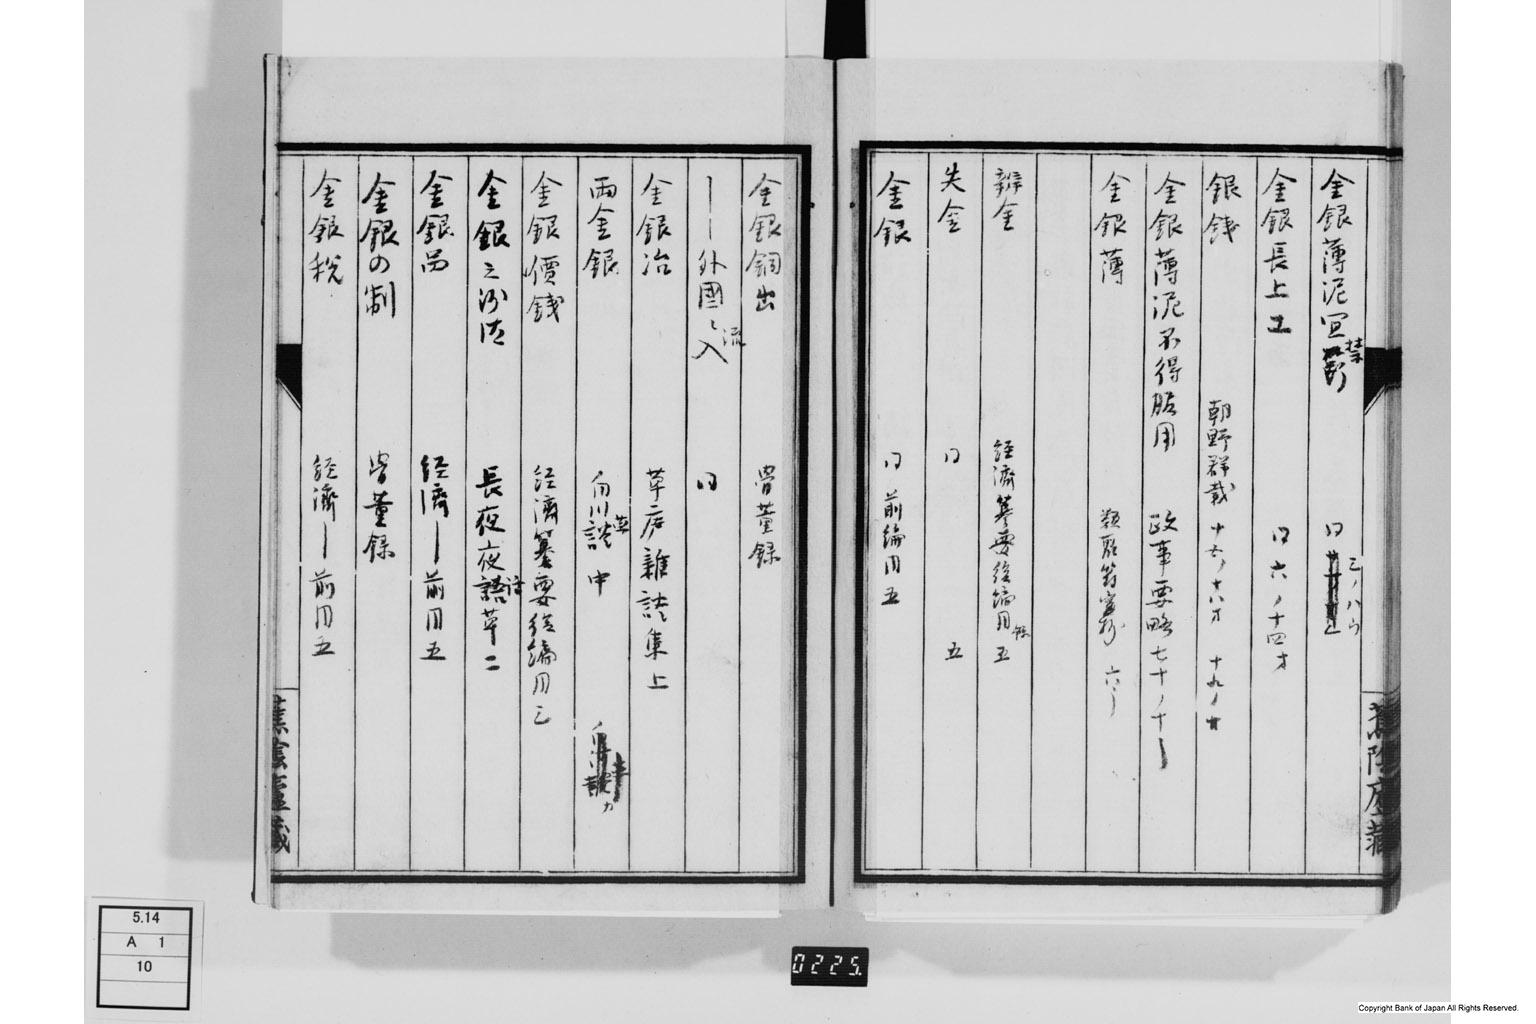 金銀薄泥宜禁断 同 三ノ八ウ
金銀長上工 同 六ノ十四才
銀銭 朝野群載 十七ノ十八才 十九ノ廿
金銀薄泥不得服用 政事要略七十ノ十
金銀薄 類聚符宣抄 六ノ
辨金 経済纂要後編用録五
失金 同 五
金銀 同 前編用五
蕉陰廬蔵
金銀銅出 皆董録
〡〡外國ヘ流入 同
金銀冶 草庵雜談集上
両金銀 白川談草中
金銀價銭 経済纂要後編用三
金銀之沙汰 長夜夜話草二
金銀品 経濟〡前用五
金銀の制 皆董録
金銀税 経濟〡前用五
蕉陰廬蔵
5.14
A 1
10
0225.
Copyright Bank of Japan All Rights Reserved.